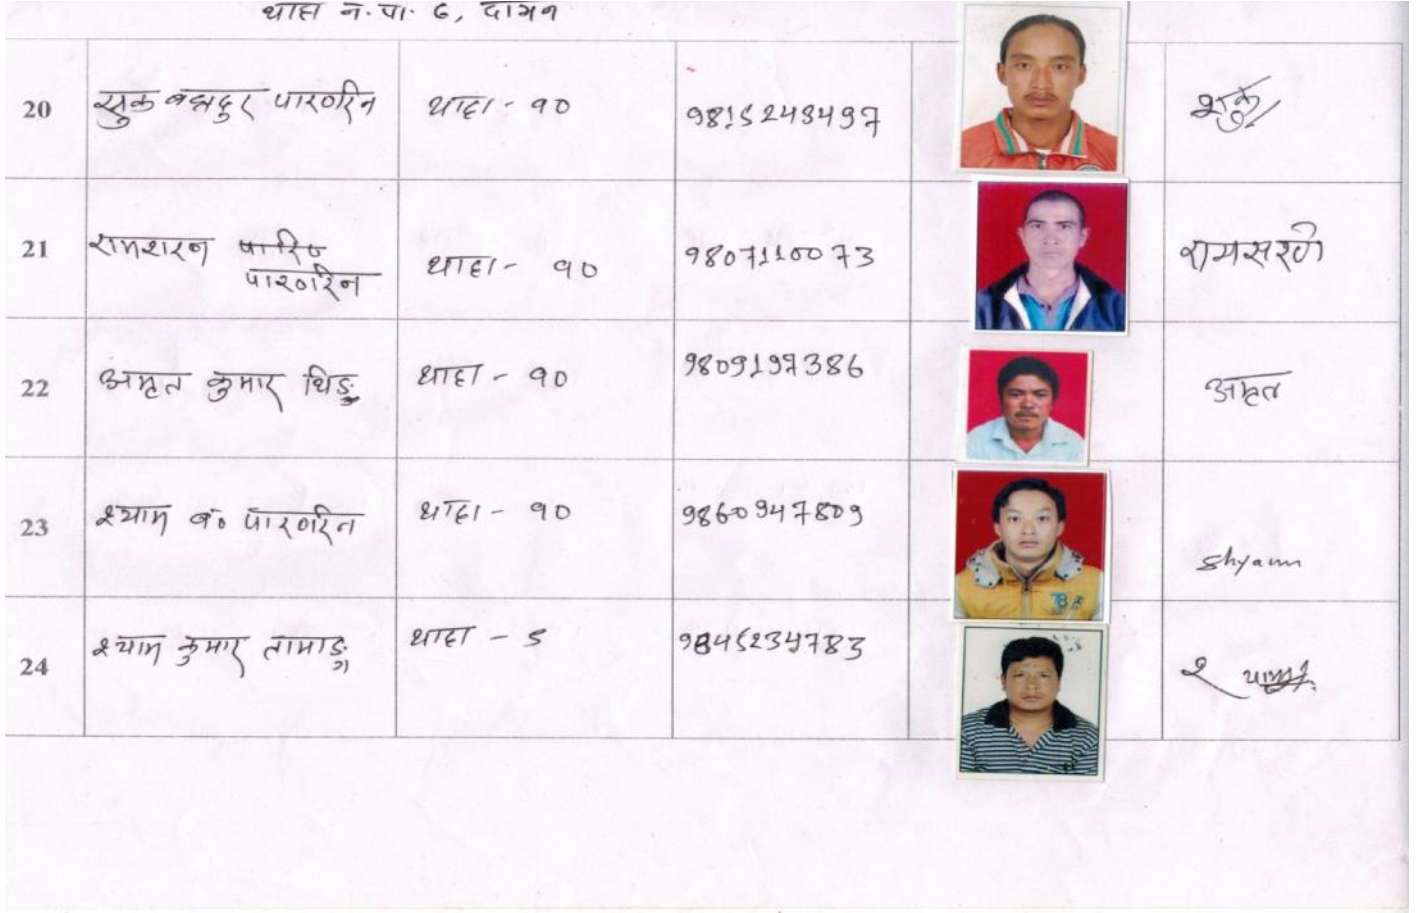 थाहा न.पा. ६, दामन
20 सुक बहादुर पाख्रिन थाहा - १० 9815248497
21 रामशरण थाहा - १० 9807110073 रामसरण
पाख्रिन
22 अमृत कुमार थिङ थाहा - १० 9809197386 अमृत
23 श्याम ब० पाख्रिन थाहा - १० 9860947809 Shyam
24 श्याम कुमार तामाङ थाहा - ५ 9845234783